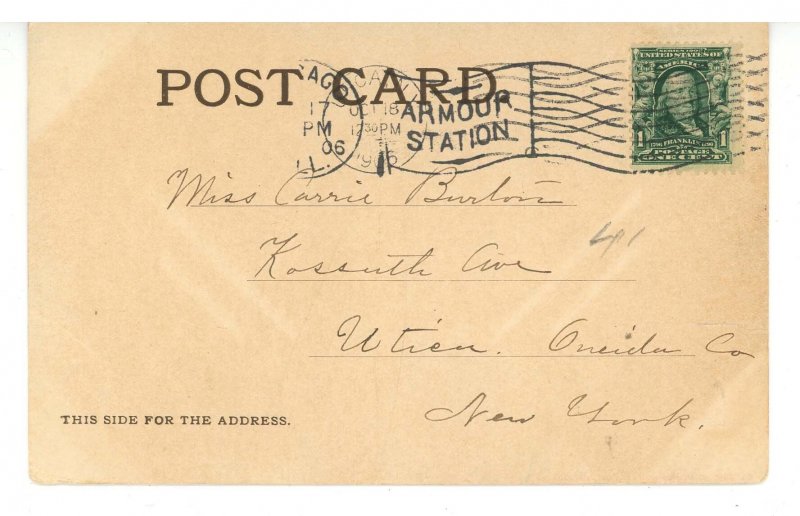 POST CARD
CAGO
17
PM
06
ILL.
OCT 18
12 30 PM
1906
ARMOUR
STATION
SERIES 1902
UNITED STATES OF
AMERICA
1 1706 FRANKLIN 1790 1
POSTAGE
ONE CENT
Miss Carrie Burton
41
Kossuth Ave
Utica. Oneida Co
New York.
THIS SIDE FOR THE ADDRESS.